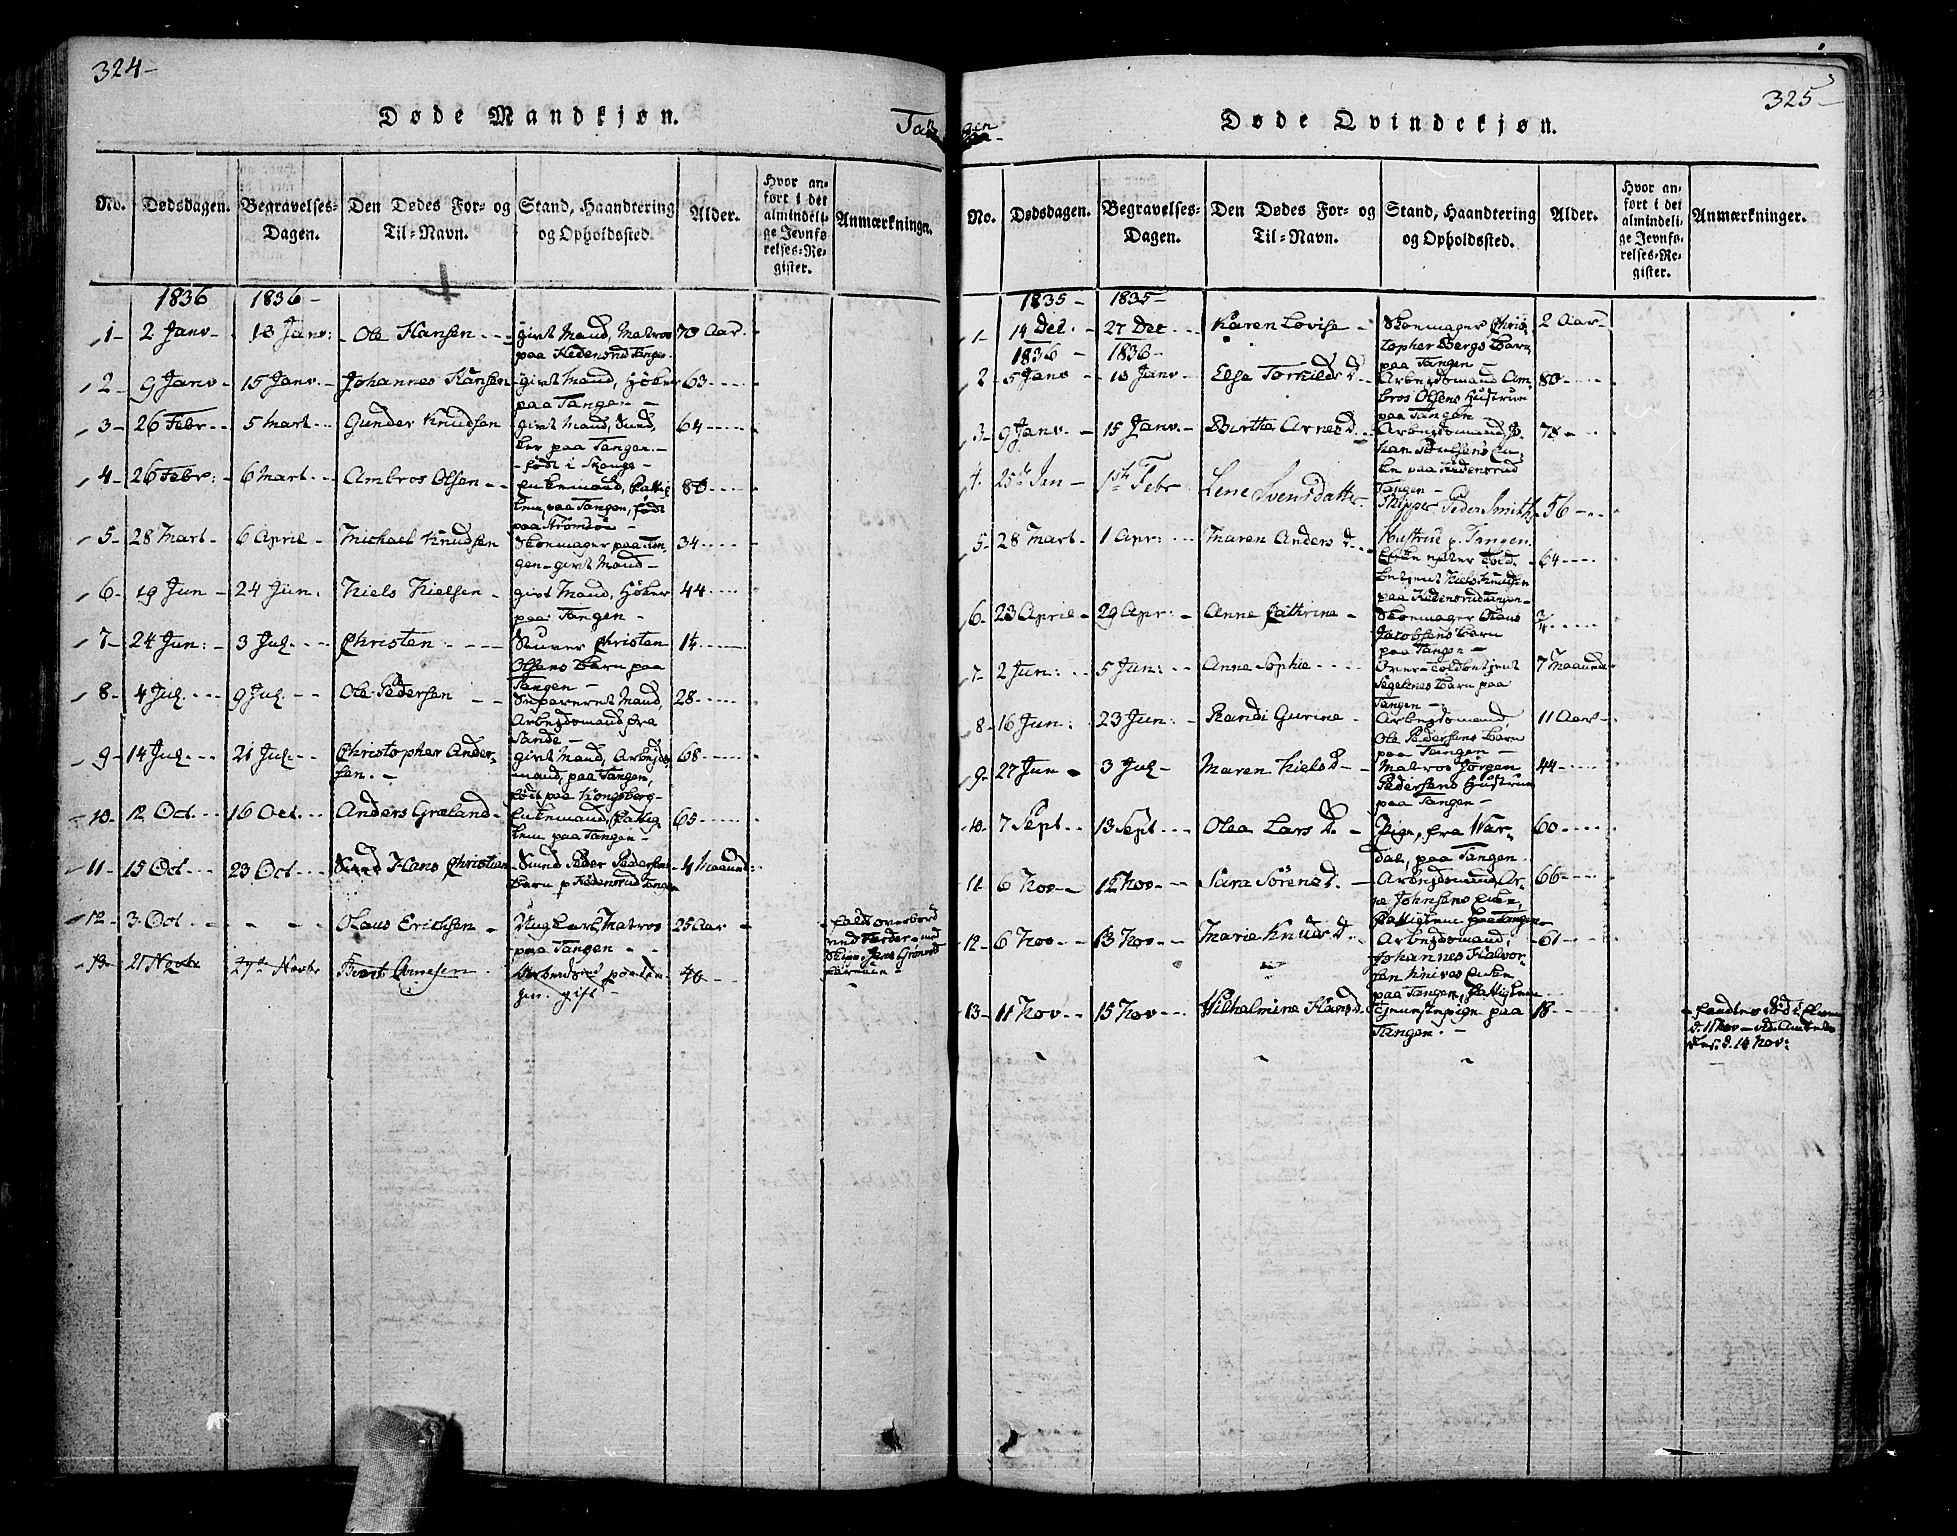 324-
Døde Mandkjøn.
Tangen
No. Dødsdagen. Begravelses-Dagen. Den Dødes For- og Til-Navn. Stand, Haandtering og Opholdssted. Alder. Hvor anført i det almindelige Jevnførelses-Register. Anmærkninger.
1836 1836-
1- 2 Janv- 13 Janv: Ole Hansen - givt Mand, Matros 70 Aar.
paa Hedensrud Tangen
2- 9 Janv- 15 Janv.- Johannes Hansen- givt Mand, Høker 63
paa Tangen-
3- 26 Febr.- 5 Mart- Gunder Knudsen givt Mand, 64
paa Tangen.-
- født i
4- 26 Febr: 6 Mart- Ambros Olsen- Enkemand, Fattig 80
lem, paa Tangen, født
paa Strømsøe-
5- 28 Mart- 6 April- Michael Knudsen Skomager paa Tan 34
gen- givt Mand-
6- 19 Jun- 24 Jun: Niels Nielsen- givt Mand, Høker 44
paa Tangen-
7- 24 Jun: 3 Jul.- Christen- Christen 14
Olsens Barn paa
Tangen-
8- 4 Jul.- 9 Jul.- Ole Pedersen- Mand, 28
Arbejdsmand fra
Sande-
9- 14 Jul.- 21 Jul.- Christopher Ander- givt Mand, Arbejds 68
sen.- mand, paa Tangen,
født paa Kongsberg-
10- 12 Oct.- 16 Oct.- Anders Græsland- Enkemand, Fattig 65
lem, paa Tangen-
11- 15 Oct- 23 Oct- Hans Christian- Peder Pedersens 4 Maaned:
Barn p Hedensrud Tangen
12- 3 Oct.- - Olaus Erichsen- Ungkarl, Matros 25 Aar- faldt overbord
paa Tangen- ved Færder med
Skipp. Jens
13- 21 Novbr 27de Novbr Arnesen. Arbmd paa Tan 46
gen. gift-
325-
Døde Qvindekjøn.
No. Dødsdagen. Begravelses-Dagen. Den Dødes For- og Til-Navn. Stand, Haandtering og Opholdssted. Alder. Hvor anført i det almindelige Jevnførelses-Register. Anmærkninger.
1835- 1835-
1- 14 Dec.- 27 Dec- Karen Lovise- Skomager Chris 2 Aar-
topher Bergs Barn,
paa Tangen-
1836- 1836-
2- 5 Janv- 13 Janv- Else Torkilds D. Arbejdsmand Am- 80
bros Olsens Hustrue
paa Tangen-
3- 9 Janv.- 15 Janv.- Birthe Arnes D. Arbejdsmand Jo 78
han Enke
paa Hedensrud
Tangen-
4. 25de Jan- 1ste Febr Lene Svensdatter Skipper Peder Smiths 56
Hustrue p. Tangen.
5- 28 Mart- 1 Apr: Maren Anders D. Enke efter Told 64
betjent Niels Knudsen
paa Hedensrud Tangen-
6- 23 April- 29 Apr: Anne Cathrine- Skomager Olaus 3/4
Jacobsens Barn
paa Tangen-
7- 2 Jun: 5 Jun: Anne Sophie- Over-Toldbetjent 7 Maaned
Segelckes Barn paa
Tangen-
8- 16 Jun: 23 Jun: Randi Gurine- Arbejdsmand, 11 Aar-
Ole Pedersens Barn
paa Tangen-
9- 27 Jun- 3 Jul- Maren Niels D- Matros Jørgen 44
Pedersens Hustrue
paa Tangen-
10- 7 Sept- 13 Sept- Olea Lars D.- Pige, fra War- 60
dal, paa Tangen.
11 6 Nov- 12 Nov- Sara Sørens D.- Arbejdsmand Ar- 66
ne Johnsens Enke,
Fattiglem paa Tangen-
12- 6 Nov- 13 Nov- Marie Knuds D.- Arbejdsmand, 61
Johannes Halvor-
sen Knives Enke
paa Tangen, Fattiglem.
13- 11 Nov- 15 Nov- Wilhelmine Hans D. Tjenestepige paa 18 - fandtes død i Elven
Tangen.- d. 11 Nov- vid. Amtets
Res: d. 14 Nov: